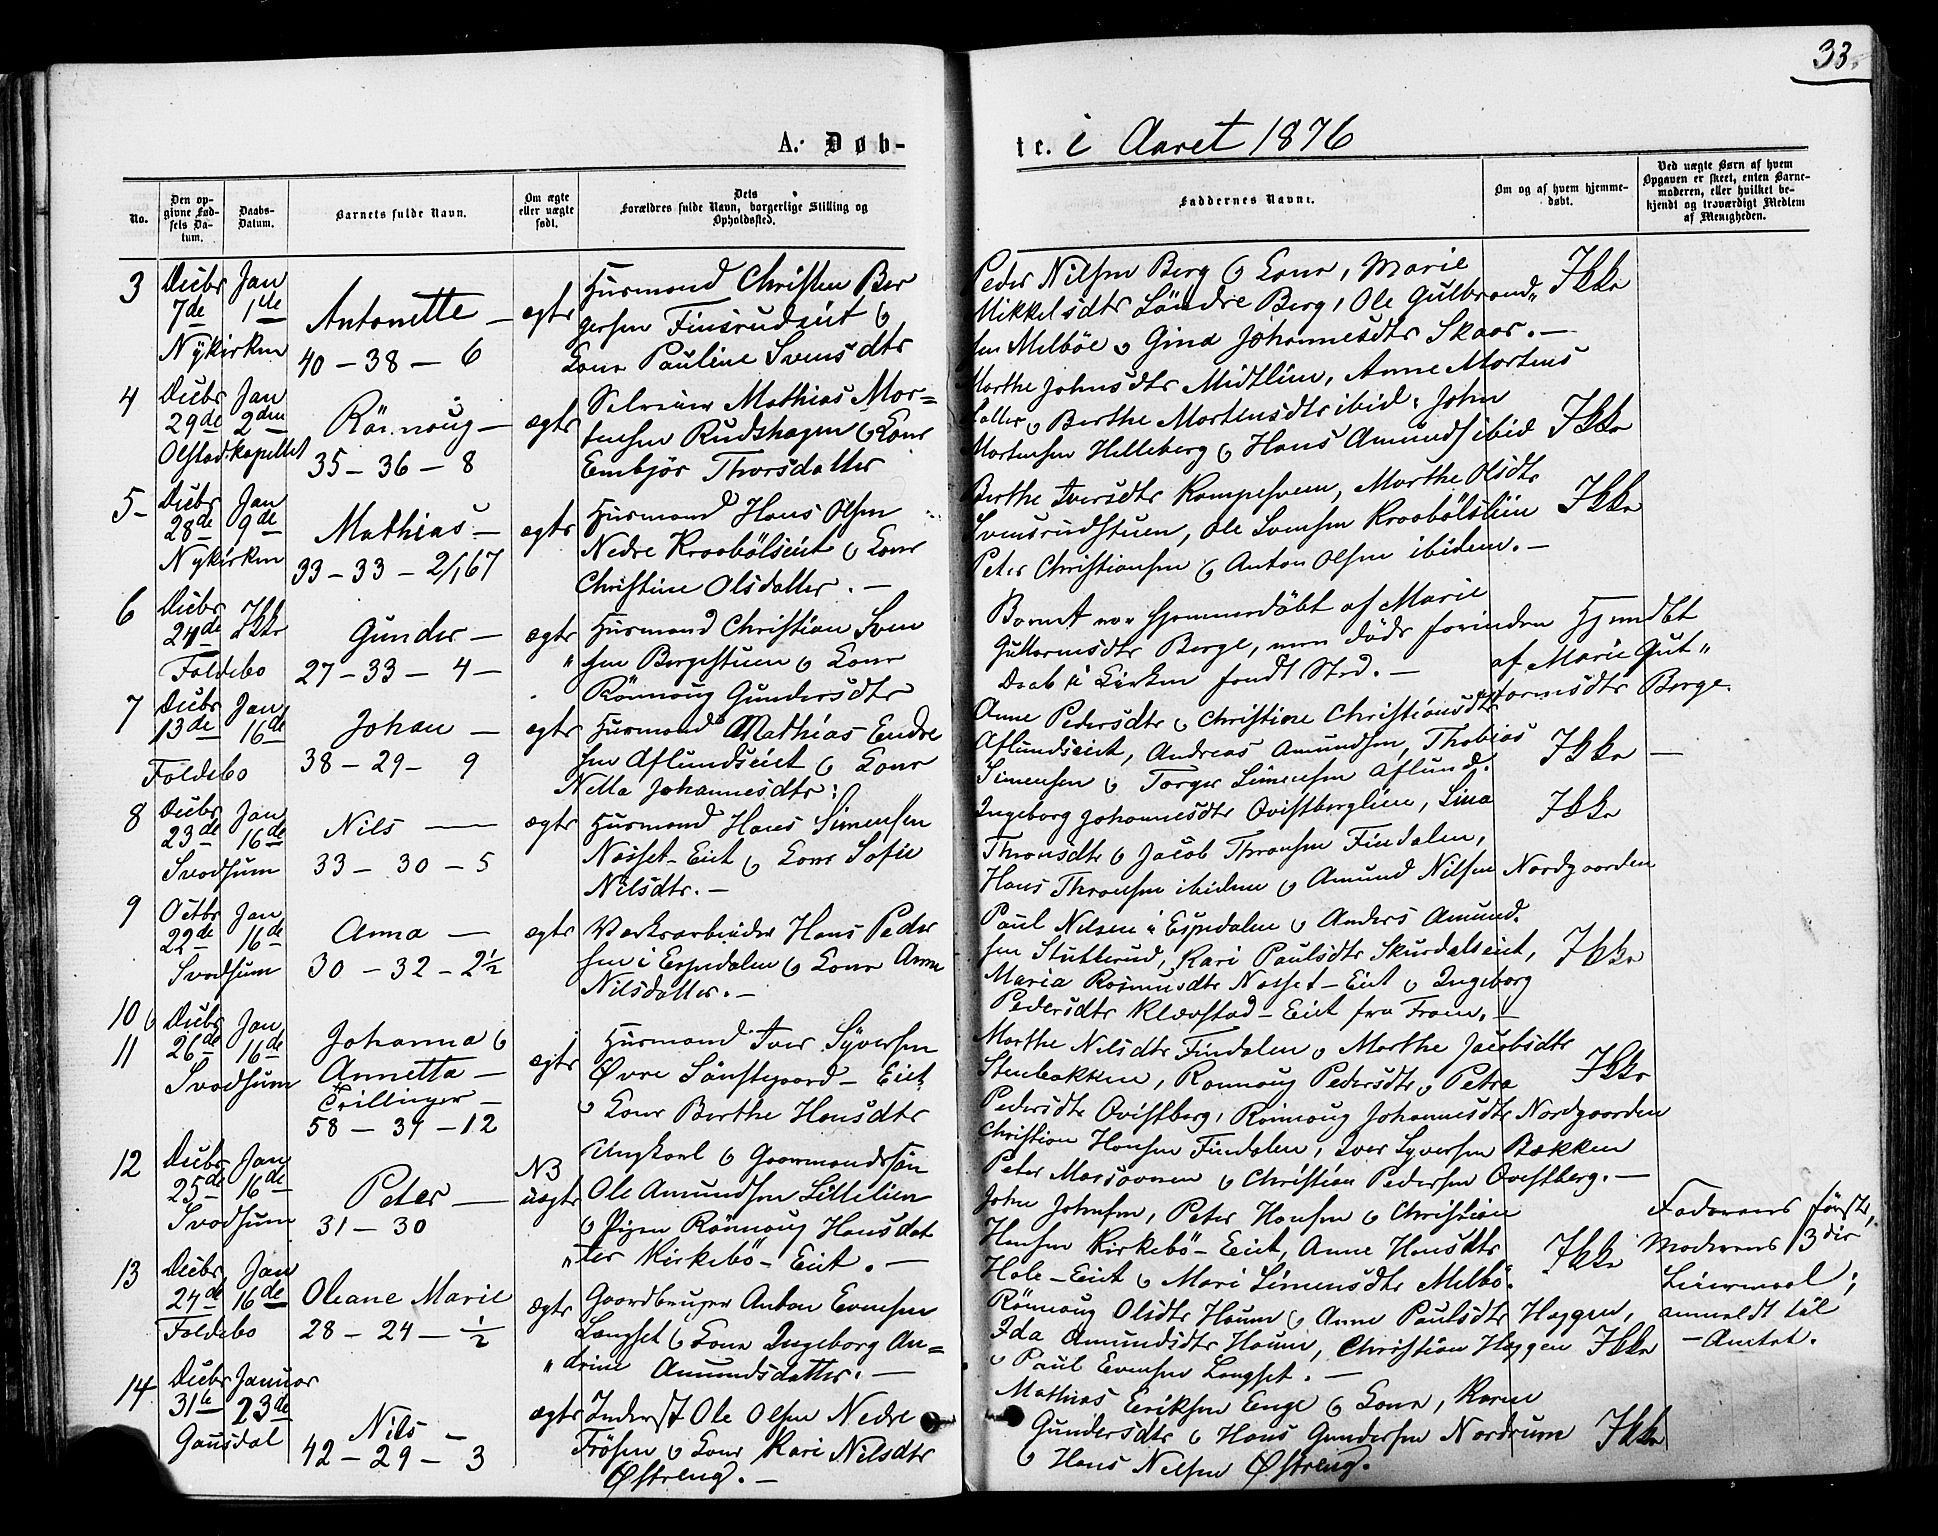 33.
A. Døb-
te. i Aaret 1876
No.
Den op-
givne Fød-
sels Da-
tum.
Daabs-
Datum.
Barnets fulde Navn.
Om ægte
eller uægte
født.
Dets
Forældres fulde Navn, borgerlige Stilling og
Opholdssted.
Faddernes Navne.
Om og af hvem hjemme-
døbt.
Ved uægte Børn af hvem
Opgaven er skeet, enten Barne-
moderen, eller hvilket be-
kjendt og troværdigt Medlem
af Menigheden.
3 Decbr 7de Jan 1ste
Nykirken
Antonette —
40 - 38 - 6
ægte
Husmand Christen Ber
gersen Finsrudeiet &
Kone Pauline Svensdtr
Peder Nilsen Berg & Kone, Marie
Mikkelsdtr Söndre Berg, Ole Gulbrand„
sen Melböe & Gina Johannesdtr Skaar. —
Ikke
4 Decbr 29de Jan 2den
Olstad kapellet
Rönnoug —
35 - 36 - 8
ægte
Selveier Mathias Mor=
tensen Rudshagen & Kone
Embjör Thorsdatter
Marthe Johnsdtr Midtlien, Anne Mortens
datter & Berthe Mortensdtr ibid. John
Mortensen Helleberg & Hans Amunds ibid
Ikke
5 - Decbr 28de Jan 9de
Nykirken
Mathias —
33 - 33 - 2/1 67
ægte
Husmand Hans Olsen
Nedre Kraaböleiet & Kone
Christine Olsdatter. —
Berthe Iversdtr Kampesveen, Marthe Olsdtr
Svensrudstuen, Ole Svensen Kraabölslien
Peter Christiansen & Anton Olsen ibidem. —
Ikke
6 Decbr 24de Ikke
Foldebo
Gunder —
27 - 33 - 4 -
ægte
" Husmand Christian Sven
sen Bergestuen & Kone
Rönnoug Gundersdtr
Barnet var hjemmedöbt af Marie
Guttormsdtr Berge, men döde forinden
Daab i Kirken fandt Sted. —
Hjemdöbt
af Marie Gut„
tormsdtr Berge.
7 Decbr 13de Jan 16de
Foldebo
Johan —
38 - 29 - 9
ægte
Husmand Mathias Endre
sen Aflundseiet & Kone
Nilla Johannesdtr:
Anne Pedersdtr & Christine Christiansdtr
Aflundseiet, Andreas Amundsen, Thobias
Simensen & Torger Simensen Aflund.
Ikke —
8 Decbr 23de Jan 16de
Svadsum
Nils —
33 - 30 - 5
ægte
Husmand Hans Simensen
Næsset-Eiet & Kone Sofie
Nilsdtr. —
Ingeborg Johannesdtr Qvistberglien, Lina
Thronsdtr & Jacob Thronsen Findalen,
Hans Thronsen ibidem & Amund Nilsen Nordgaarden
Ikke
9 Octbr 22de Jan 16de
Svadsum
Anna —
30 - 32 - 2½
ægte
Værksarbeider Hans Peder
sen i Espedalen & Kone Anne
Nilsdatter. —
Paul Nilsen i Espedalen & Anders Amund.
sen Stutterud, Kari Paulsdtr Skurdalseiet,
Maria Rasmusdtr Næsset-Eiet & Ingeborg
Pedersdtr Klævstad-Eiet fra Fron. —
Ikke
10 &
11 Decbr 26de Jan 16de
Svadsum
Johanna &
Annetta —
Tvillinger —
58 - 39 - 12
ægte
Husmand Iver Syversen
Øvre Sönstegaard-Eiet
& Kone Berthe Hansdtr
Marthe Nilsdtr Findalen & Marthe Jacobsdtr
Stenbakken, Rönnoug Pedersdtr & Petra
Pedersdtr Qvistberg, Rönnoug Johannesdtr Nordgaarden
Christian Hansen Findalen, Iver Syversen Bakken
Peter Marsoven & Christian Pedersen Qvistberg. —
Ikke
12 Decbr 25de Jan 16de
Svadsum
Peter —
31 - 30
NB
uægte
Ungkarl & Gaardmandssön
Ole Amundsen Lillelien
& Pigen Rönnoug Hansdat
„ter Kirkebö-Eiet. —
John Johnsen, Peter Hansen & Christian
Hansen Kirkebö-Eiet, Anne Hansdtr
Hole-Eiet & Mari Simensdtr Melbö.
Ikke
Faderens förste,
Moderens 3die
Leiermaal;
anmeldt til
—Amtet.
13 Decbr 24de Jan 16de
Foldebo
Oleane Marie
28 - 24 - ½
ægte
Gaardbruger Anton Evensen
Langset & Kone Ingeborg An=
„drine Amundsdatter. —
Rönnoug Olsdtr Haum & Anne Paulsdtr Haggen,
Ida Amundsdtr Haum, Christian Haggen
& Paul Evensen Langset. —
Ikke
14 Decbr 31te Januar 23de
Gausdal
Nils —
42 - 29 - 3
ægte
Inderst Ole Olsen Nedre
Frösen & Kone Kari Nilsdtr
Østreng. —
Mathias Eriksen Enge & Kone, Karen
Gundersdtr & Hans Gundersen Nordrum
& Hans Nilsen Østreng.
Ikke